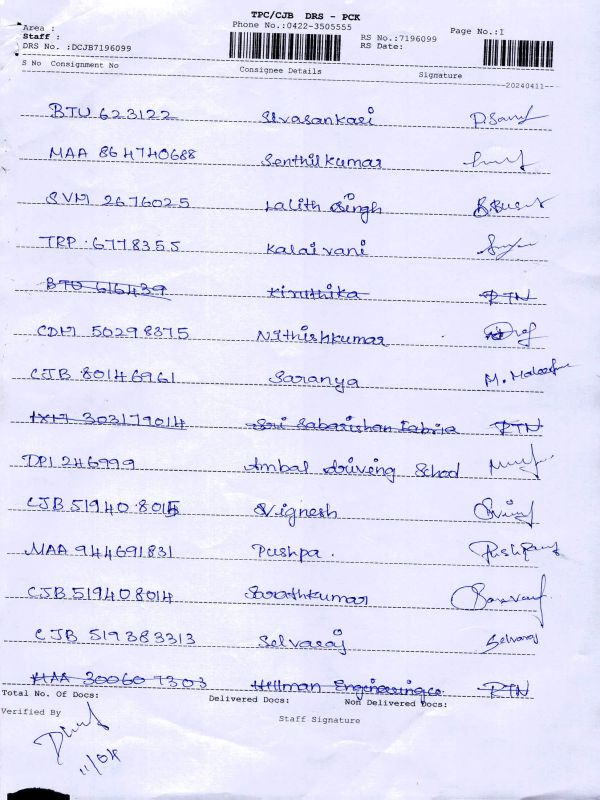 TPC/CJB DRS - PCK
Area :
Phone No.:0422-3505555
Page No.:1
Staff :
RS No.:7196099
DRS No. :DCJB7196099
RS Date:
S No Consignment No Consignee Details Signature
20240411
BTU 623122 Sivasankari
MAA 864740688 Senthilkumar
SVM 2676025 Lalith Singh
TRP : 6778355 Kalaivani
BTU 616439 Kiruthika RTN
CDM 50298375 Nithishkumar
CJB 80146961 Saranya
303179014 Sri Sabarishan Fabria RTN
DPI 246999 Ambal driving School
CJB 51940 8015 Vignesh
MAA 944691831 Pushpa .
CJB 519408014 Sarathkumar
CJB 519383313 Selvaraj Selvaraj
MAA 30060 7303 Hillman Engineering RTN
Total No. Of Docs: Delivered Docs: Non Delivered Docs:
Verified By
Staff Signature
11/04